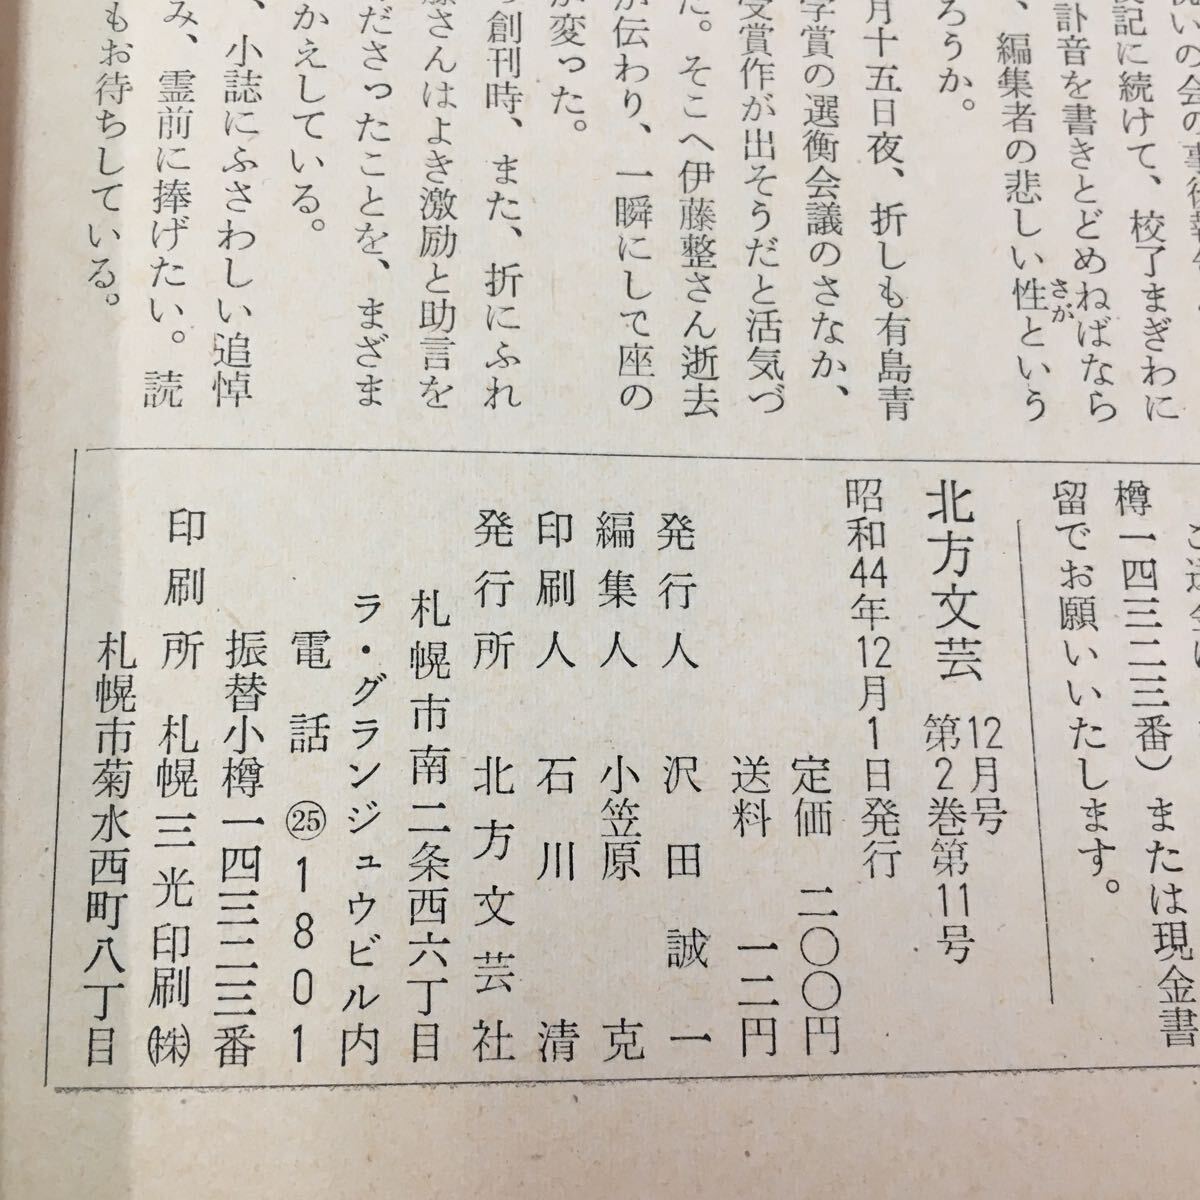 いの会の事後報
後記に続けて、校了まぎわに
訃音を書きとどめねばなら
、編集者の悲しい性という
さが
ろうか。
月十五日夜、折しも有島青
学賞の選衡会議のさなか、
受賞作が出そうだと活気づ
た。そこへ伊藤整さん逝去
が伝わり、一瞬にして座の
が変った。
創刊時、また、折にふれ
藤さんはよき激励と助言を
ださったことを、まざま
かえしている。
、小誌にふさわしい追悼
み、霊前に捧げたい。読
もお待ちしている。
樽一四三二二三番)または現金書
留でお願いいたします。
北方文芸 12月号 第2巻第11号
昭和44年12月1日発行
定価 二〇〇円
送料 一二円
発行人 沢田誠一
編集人 小笠原克
印刷人 石川清
発行所 北方文芸社
札幌市南二条西六丁目
ラ・グランジュウビル内
電話 ㉕1801
振替小樽一四三二二三番
印刷所 札幌三光印刷㈱
札幌市菊水西町八丁目